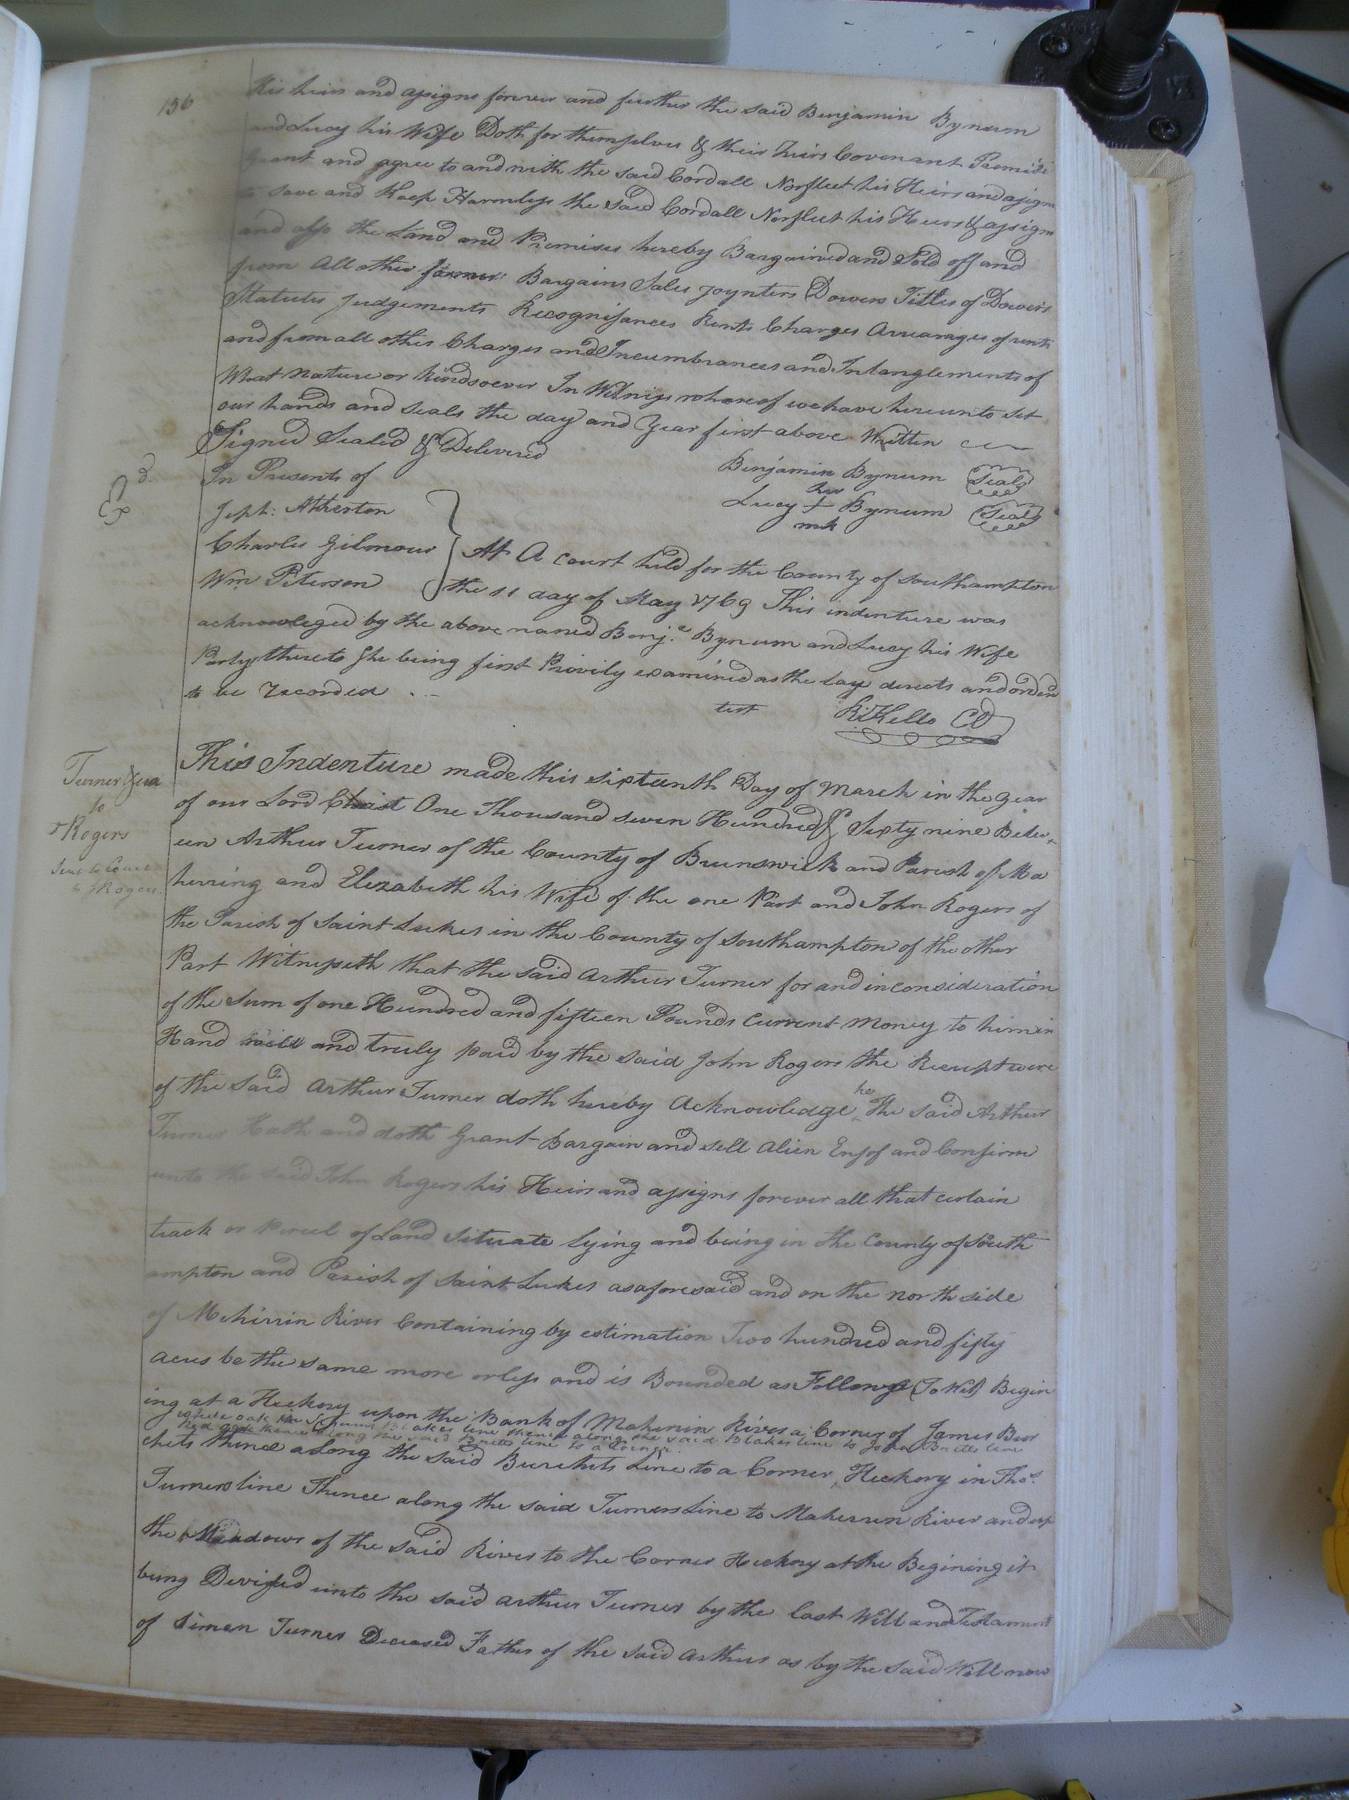 136
His heirs and assigns forever and further the said Benjamin Bynum
and Lucy his Wife Doth for themselves & their heirs Covenant Promise
Grant and agree to and with the said Cordall Norfleet his Heirs and assigns
to save and Keep Harmless the said Cordall Norfleet his Heirs & assigns
and also the Land and Premises hereby Bargained and Sold off and
from all other former Bargains Sales joynters Dowers Titles of Dowers
Statutes judgements Recognisances Rents Charges Arrearages of rents
and from all other Charges and Incumbrances and Intanglements of
What nature or kindsoever In Witness whereof we have hereunto set
our hands and seals the day and Year first above Written
Signed Sealed & Delivered
In Presents of
Benjamin Bynum Seal
her
Lucy + Bynum Seal
mk
Jept: Atherton
Charles Gilmour
Wm Peterson
At A court held for the County of Southampton
the 11 day of May 1769 This indenture was
acknowleged by the above named Benj.a Bynum and Lucy his Wife
Party thereto She being first Privily examined as the law directs and orderd
to be recorded
test R: Kello CC
Turner & ux
to
Rogers
This Indenture made this sixteenth Day of March in the year
of our Lord Christ One Thousand seven Hundred & Sixty nine Betw
een Arthur Turner of the County of Brunswick and Parish of Ma
herring and Elezabeth his Wife of the one Part and John Rogers of
the Parish of Saint Lukes in the County of Southampton of the other
Part Witnesseth that the said Arthur Turner for and in consideration
of the Sum of one Hundred and fifteen Pounds Current money to him in
Hand and truly paid by the said John Rogers the Receipt were
of the said Arthur Turner doth hereby Acknowledge he The said Arthur
Turner Hath and doth Grant Bargain and sell Alien Enfof and Confirm
unto the said John Rogers his Heirs and assigns forever all that certain
track or Parcel of Land Situate Lying and being in the County of South
ampton and Parish of Saint Lukes as aforesaid and on the north side
of Mehirrin River Containing by estimation Two hundred and fifty
acres be the same more or less and is Bounded as Follows (To Wit) Begin
ing at a Hickory upon the Bank of Maherrin River a Corner of James Bur
white oak in Blakes line thence along the said Blakes line to John Britts line
thence along the said Britts line to a Corner
chits thence along the said Burchits Line to a Corner Hickory in Thos
Turners line Thence along the said Turners Line to Maherrin River and up
the Meadows of the said River to the Corner Hickory at the Begining it
being Devised unto the said Arthur Turner by the last Will and Testament
of Simon Turner Deceased Father of the said Arthur as by the said Will now